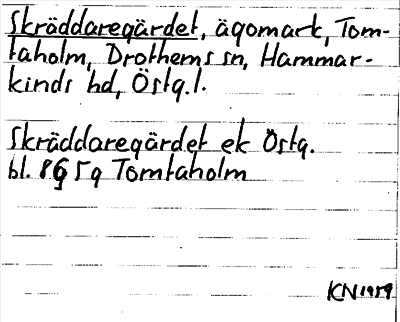 Skräddaregärdet, ägomark, Tom-
taholm, Drothems sn, Hammar-
kinds hd, Östg.l.
Skräddaregärdet ek Östg.
bl. 8G 5g Tomtaholm
KN 1959